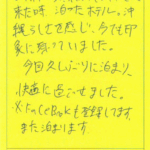 来た時 泊ったホテル。沖
縄らしさを感じ、今でも印
象に残っていました。
今回久しぶりに泊まり、
快適に過ごせました。
※FaceBookも登録してます
また泊まります